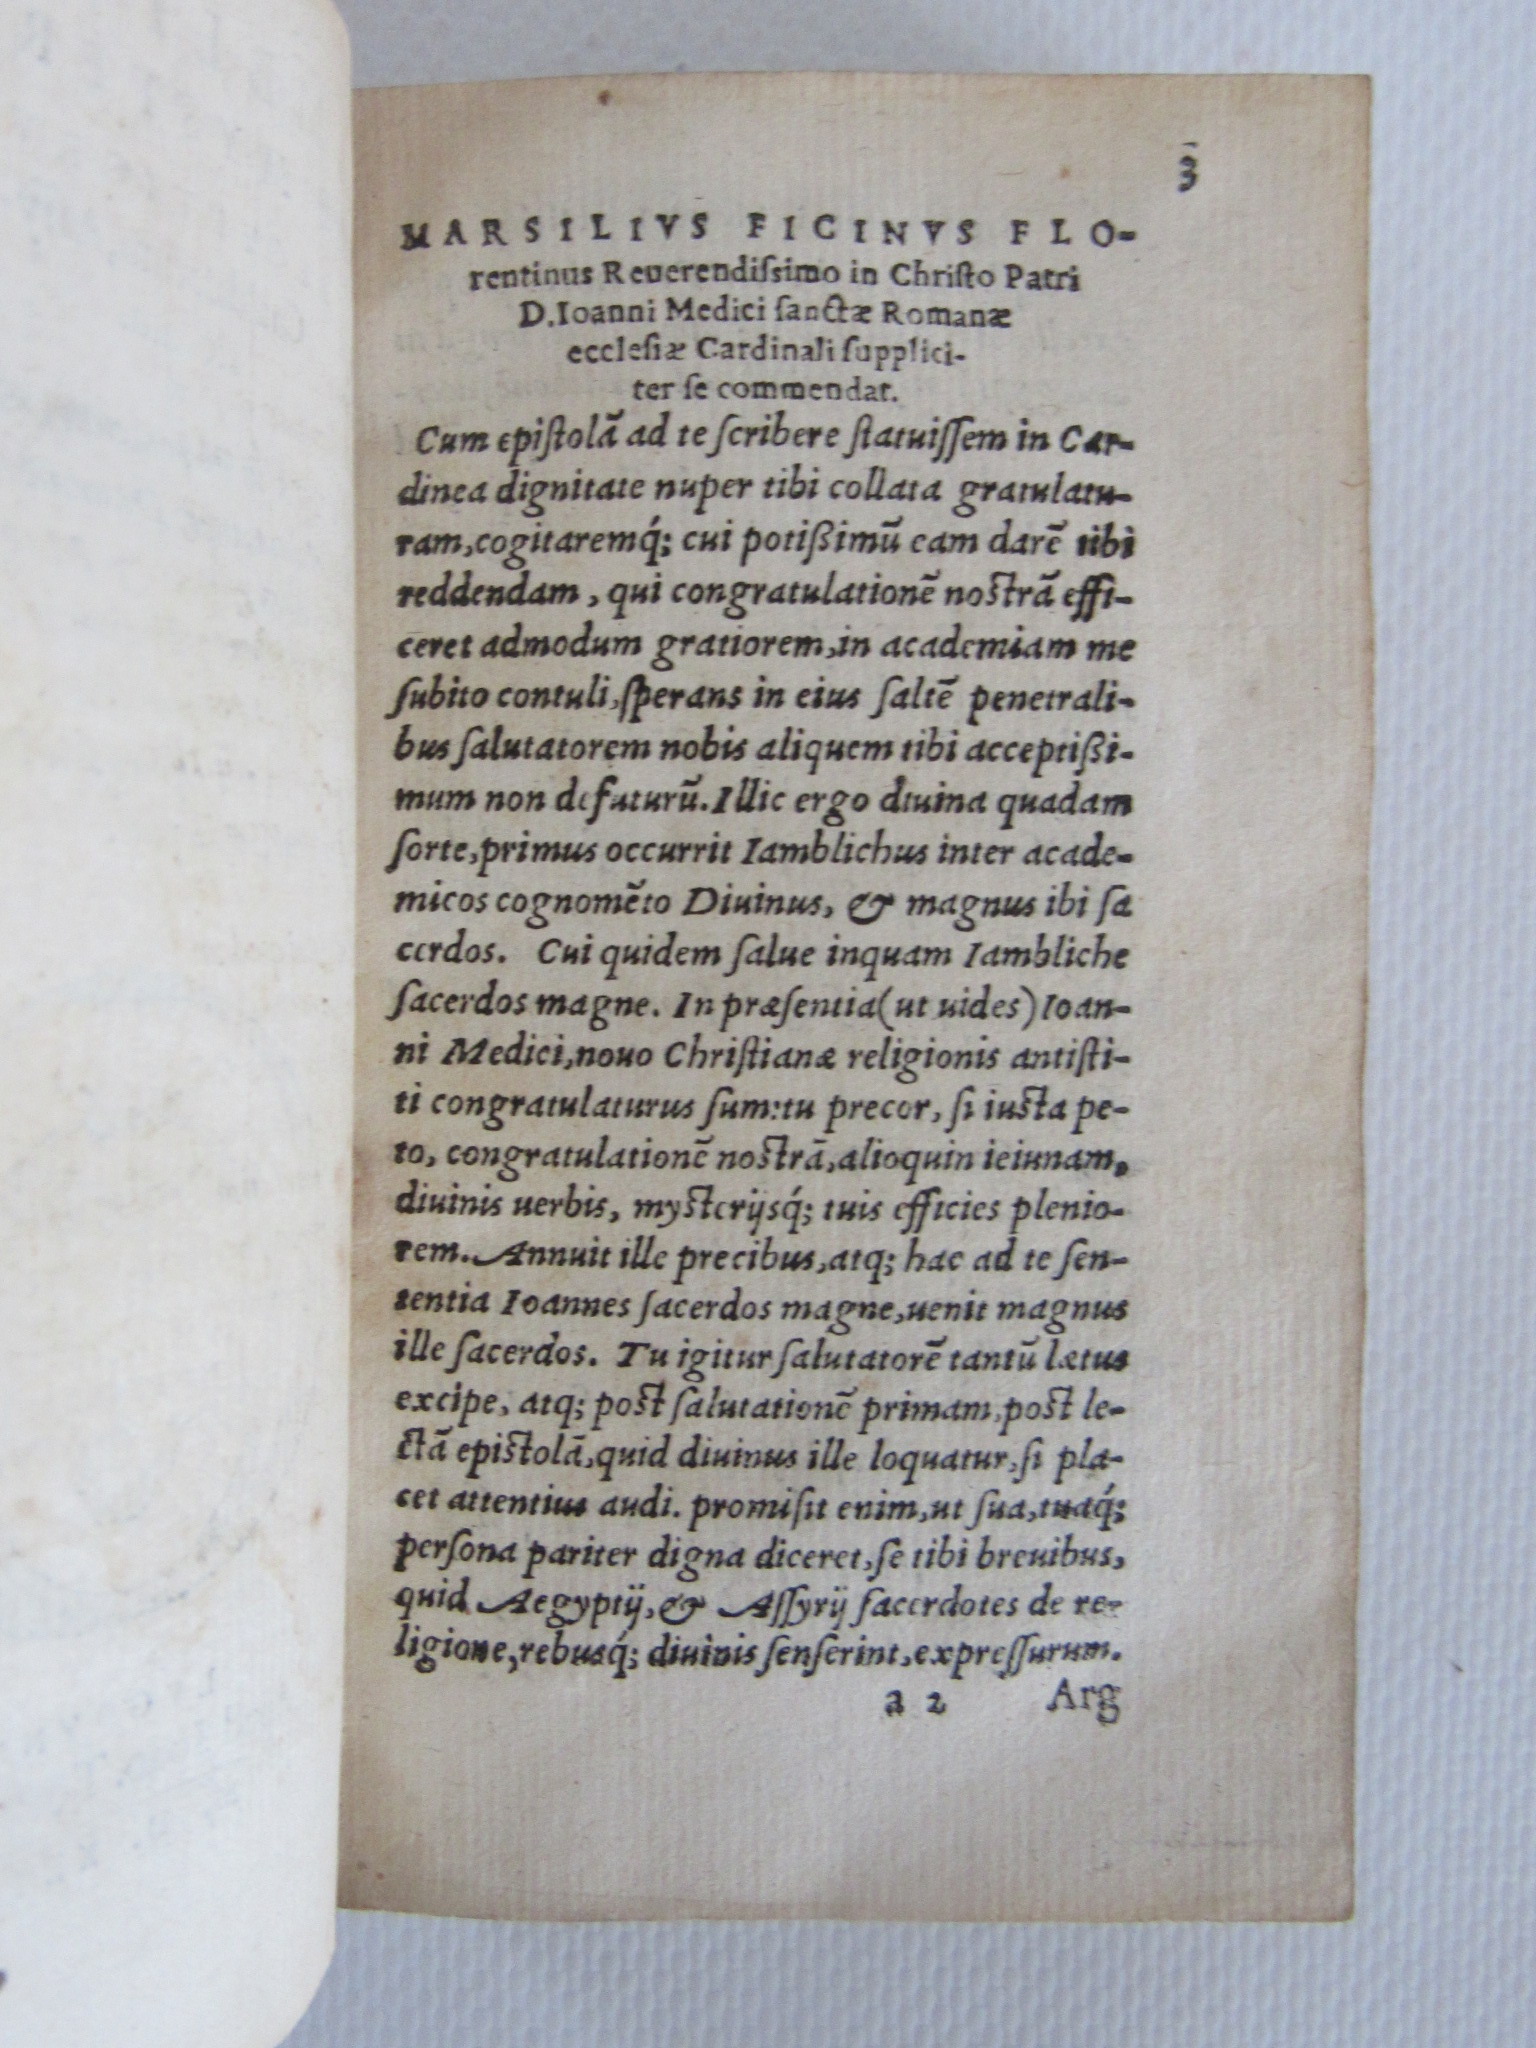 3
MARSILIVS FICINVS FLO-
rentinus Reuerendiſsimo in Chriſto Patri
D.Ioanni Medici ſanctæ Romanæ
eccleſiæ Cardinali ſupplici-
ter ſe commendat.
Cum epiſtolã ad te ſcribere ſtatuiſſem in Car-
dinea dignitate nuper tibi collata gratulatu-
ram,cogitaremq́; cui potißimũ eam darẽ tibi
reddendam, qui congratulationẽ noſtrã effi-
ceret admodum gratiorem,in academiam me
ſubito contuli,ſperans in eius ſaltẽ penetrali-
bus ſalutatorem nobis aliquem tibi acceptißi-
mum non defuturũ.Illic ergo diuina quadam
ſorte,primus occurrit Iamblichus inter acade-
micos cognomẽto Diuinus, & magnus ibi ſa
cerdos. Cui quidem ſalue inquam Iambliche
ſacerdos magne. In præſentia(ut uides)Ioan-
ni Medici,nouo Chriſtianæ religionis antiſti-
ti congratulaturus ſum:tu precor, ſi iuſta pe-
to, congratulationẽ noſtrã,alioquin ieiunam,
diuinis uerbis, myſterijsq́; tuis efficies plenio-
rem. Annuit ille precibus,atq; hac ad te ſen-
tentia Ioannes ſacerdos magne,uenit magnus
ille ſacerdos. Tu igitur ſalutatorẽ tantũ lætus
excipe, atq; poſt ſalutationẽ primam,poſt le-
ctã epiſtolã,quid diuinus ille loquatur,ſi pla-
cet attentius audi. promiſit enim,ut ſua,tuaq́;
perſona pariter digna diceret,ſe tibi breuibus,
quid Aegyptij,& Aſſyrij ſacerdotes de re-
ligione,rebusq́; diuinis ſenſerint,expreſſurum.
a 2 Arg